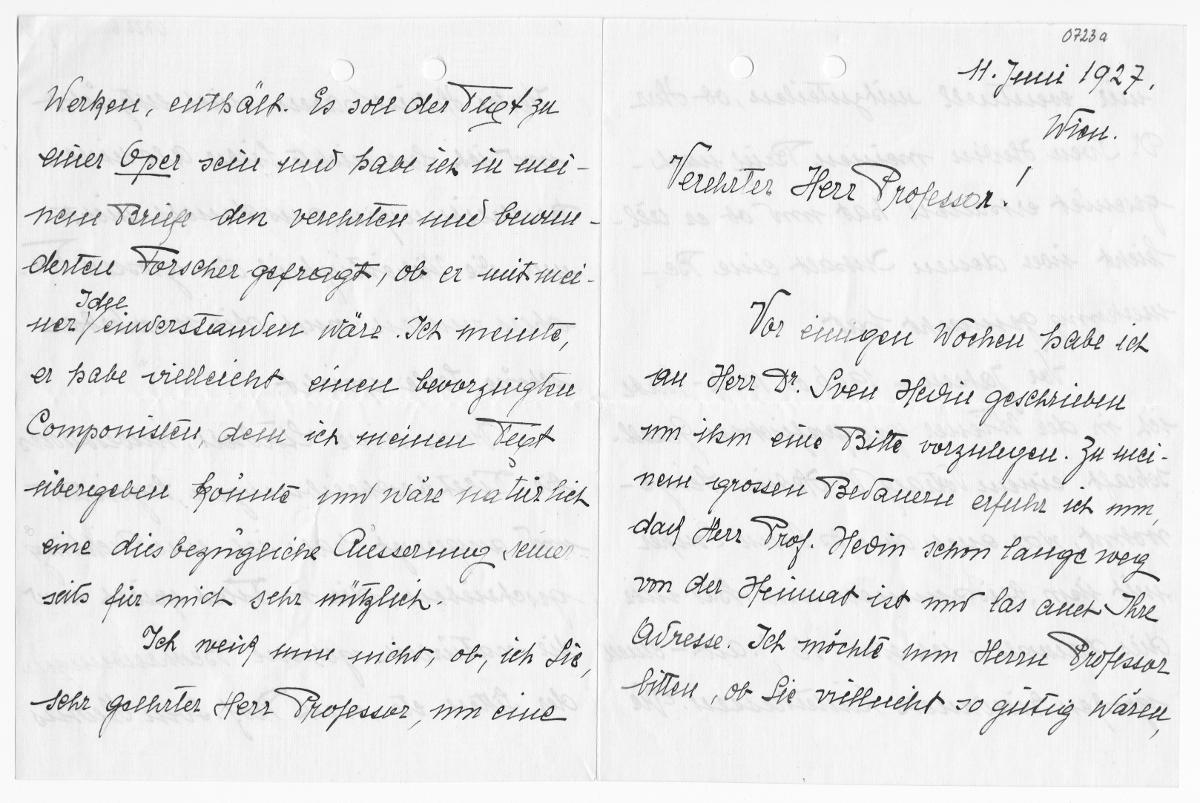 0723a
11. Juni 1927,
Wien.
Verehrter Herr Professor!
Vor einigen Wochen habe ich
an Herr Dr. Sven Hedin geschrieben
um ihm eine Bitte vorzulegen. Zu mei-
nem grossen Bedauern erfuhr ich nun,
daß Herr Prof. Hedin schon lange weg
von der Heimat ist und las auch Ihre
Adresse. Ich möchte nun Herrn Professor
bitten, ob Sie vielleicht so gütig wären,
Werken, enthält. Es soll der Text zu
einer Oper sein und habe ich in mei-
nem Briefe den verehrten und bewun-
derten Forscher gefragt, ob er mit mei-
ner Idee einverstanden wäre. Ich meinte,
er habe vielleicht einen bevorzugten
Componisten, dem ich meinen Text
übergeben könnte und wäre natürlich
eine diesbezügliche Äusserung seiner
seits für mich sehr nützlich.
Ich weiß nun nicht, ob, ich Sie,
sehr geehrter Herr Professor, um eine